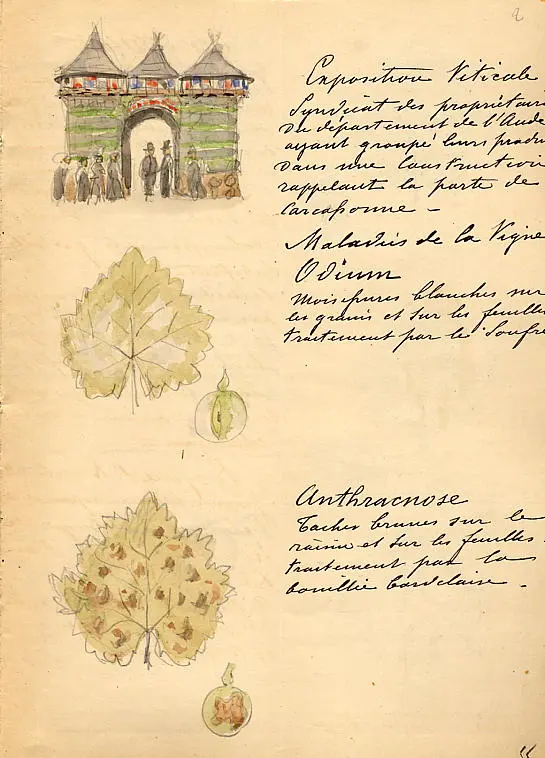 2
Exposition Viticole
Syndicat des propriétair
Du département de l'Aude
ayant groupé leurs produ
Dans une Construction
rappelant la porte de
Carcassonne -
Maladies de la Vigne
Odium
Moisissures blanches sur
les grains et sur les feuilles
traitement par le Soufre
Anthracnose
Taches brunes sur le
raisin et sur les feuilles.
traitement par la
bouillie bordelaise -